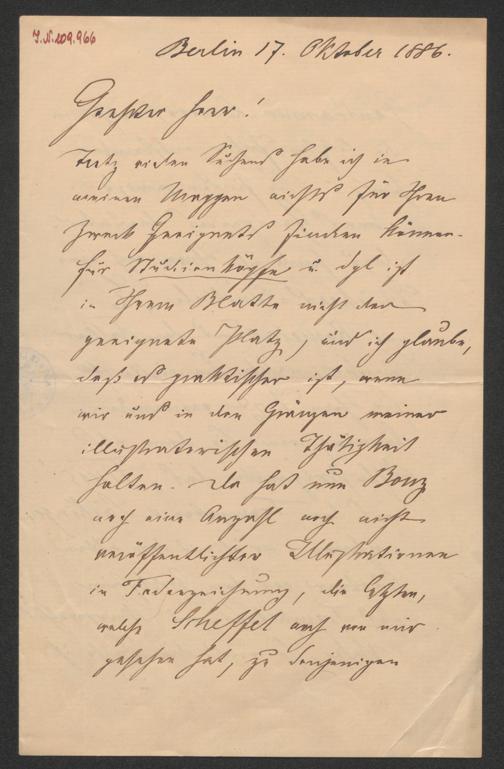 J.N. 109.966
Berlin 17. Oktober 1886.
Geehrter Herr!
Trotz vielen Suchens habe ich in
meinen Mappen nichts für Ihren
Zweck Geeignetes finden können.
Für Studienköpfe u. dgl ist
in Ihrem Blatte nicht der
geeignete Platz, und ich glaube,
daß es praktischer ist, wenn
wir uns in den Gränzen meiner
illustratorischen Thätigkeit
halten. Da hat nun Bonz
noch eine Anzahl noch nicht
veröffentlichter Illustrationen
in Federzeichnung, die letzten,
welche Scheffel noch von mir
gesehen hat, zu denjenigen